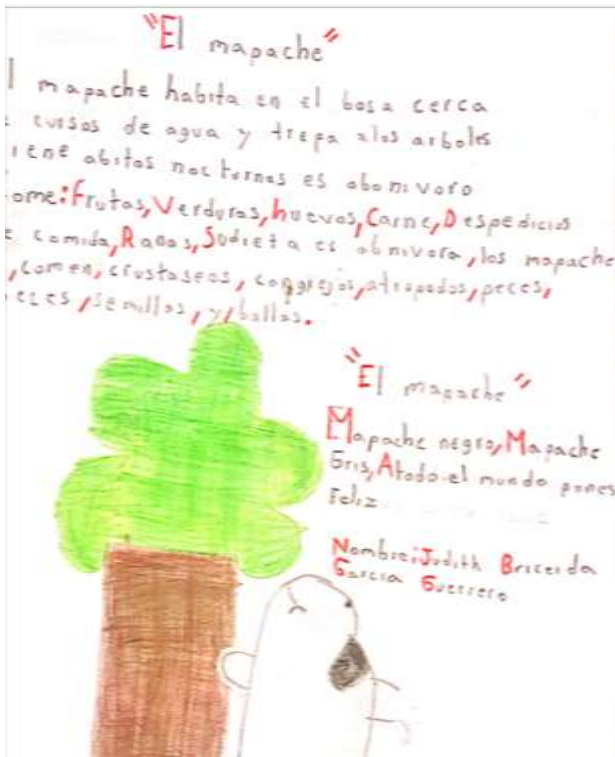 "El mapache"
l mapache habita en el bosa cerca
e cursos de agua y trepa alos arboles
iene abitos nocturnos es abonivoro
ome: Frutas, Verduras, huevos, Carne, Despedicios
e comida, Ranas, Sudieta es abnivora, los mapache
, comen, crustaseos, cangrejos, atropodos, peces,
eces, semillas, y ballas.
"El mapache"
Mapache negro, Mapache
Gris, Atodo el mundo pones
Feliz
Nombre: Judith Briceida
Garcia Guerrero